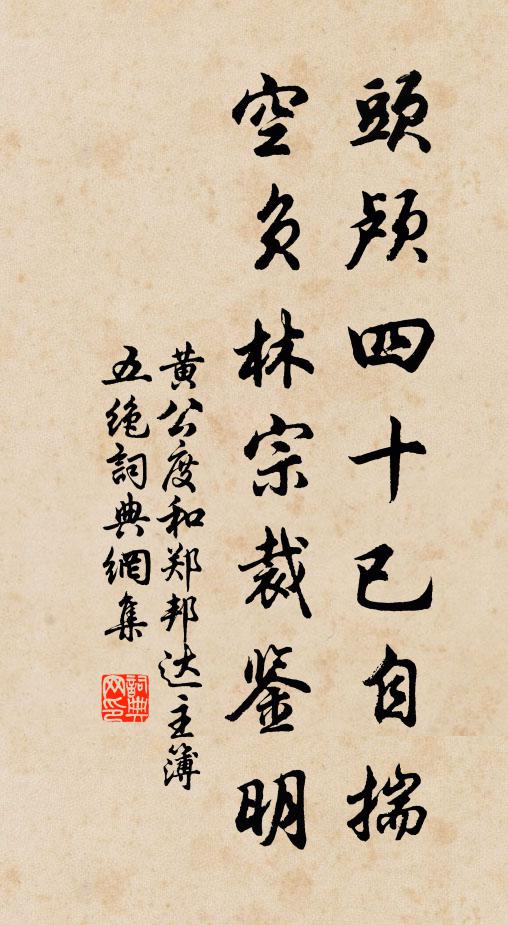 頭颅四十已自揣
空负林宗裁鉴明
黄公度和郑邦达主簿
五绝詞典網集
詞典
网印